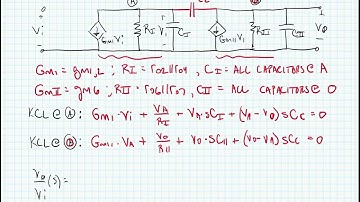 A CC B
+ + + +
Vi GMI Vi RI V1 CI GMII V1 RII CII VO
- - - -
GMI = gM1,2 ; RI = rO2||rO4 , CI = ALL CAPACITORS @ A
GMII = gM6 ; RII = rO6||rO7 , CII = ALL CAPACITORS @ O
KCL @ A : GMI · Vi + VA/RI + VA · SCI + (VA - VO) SCC = 0
KCL @ B : GMII · VA + VO/RII + VO · SCII + (VO - VA) SCC = 0
VO/Vi (S) =